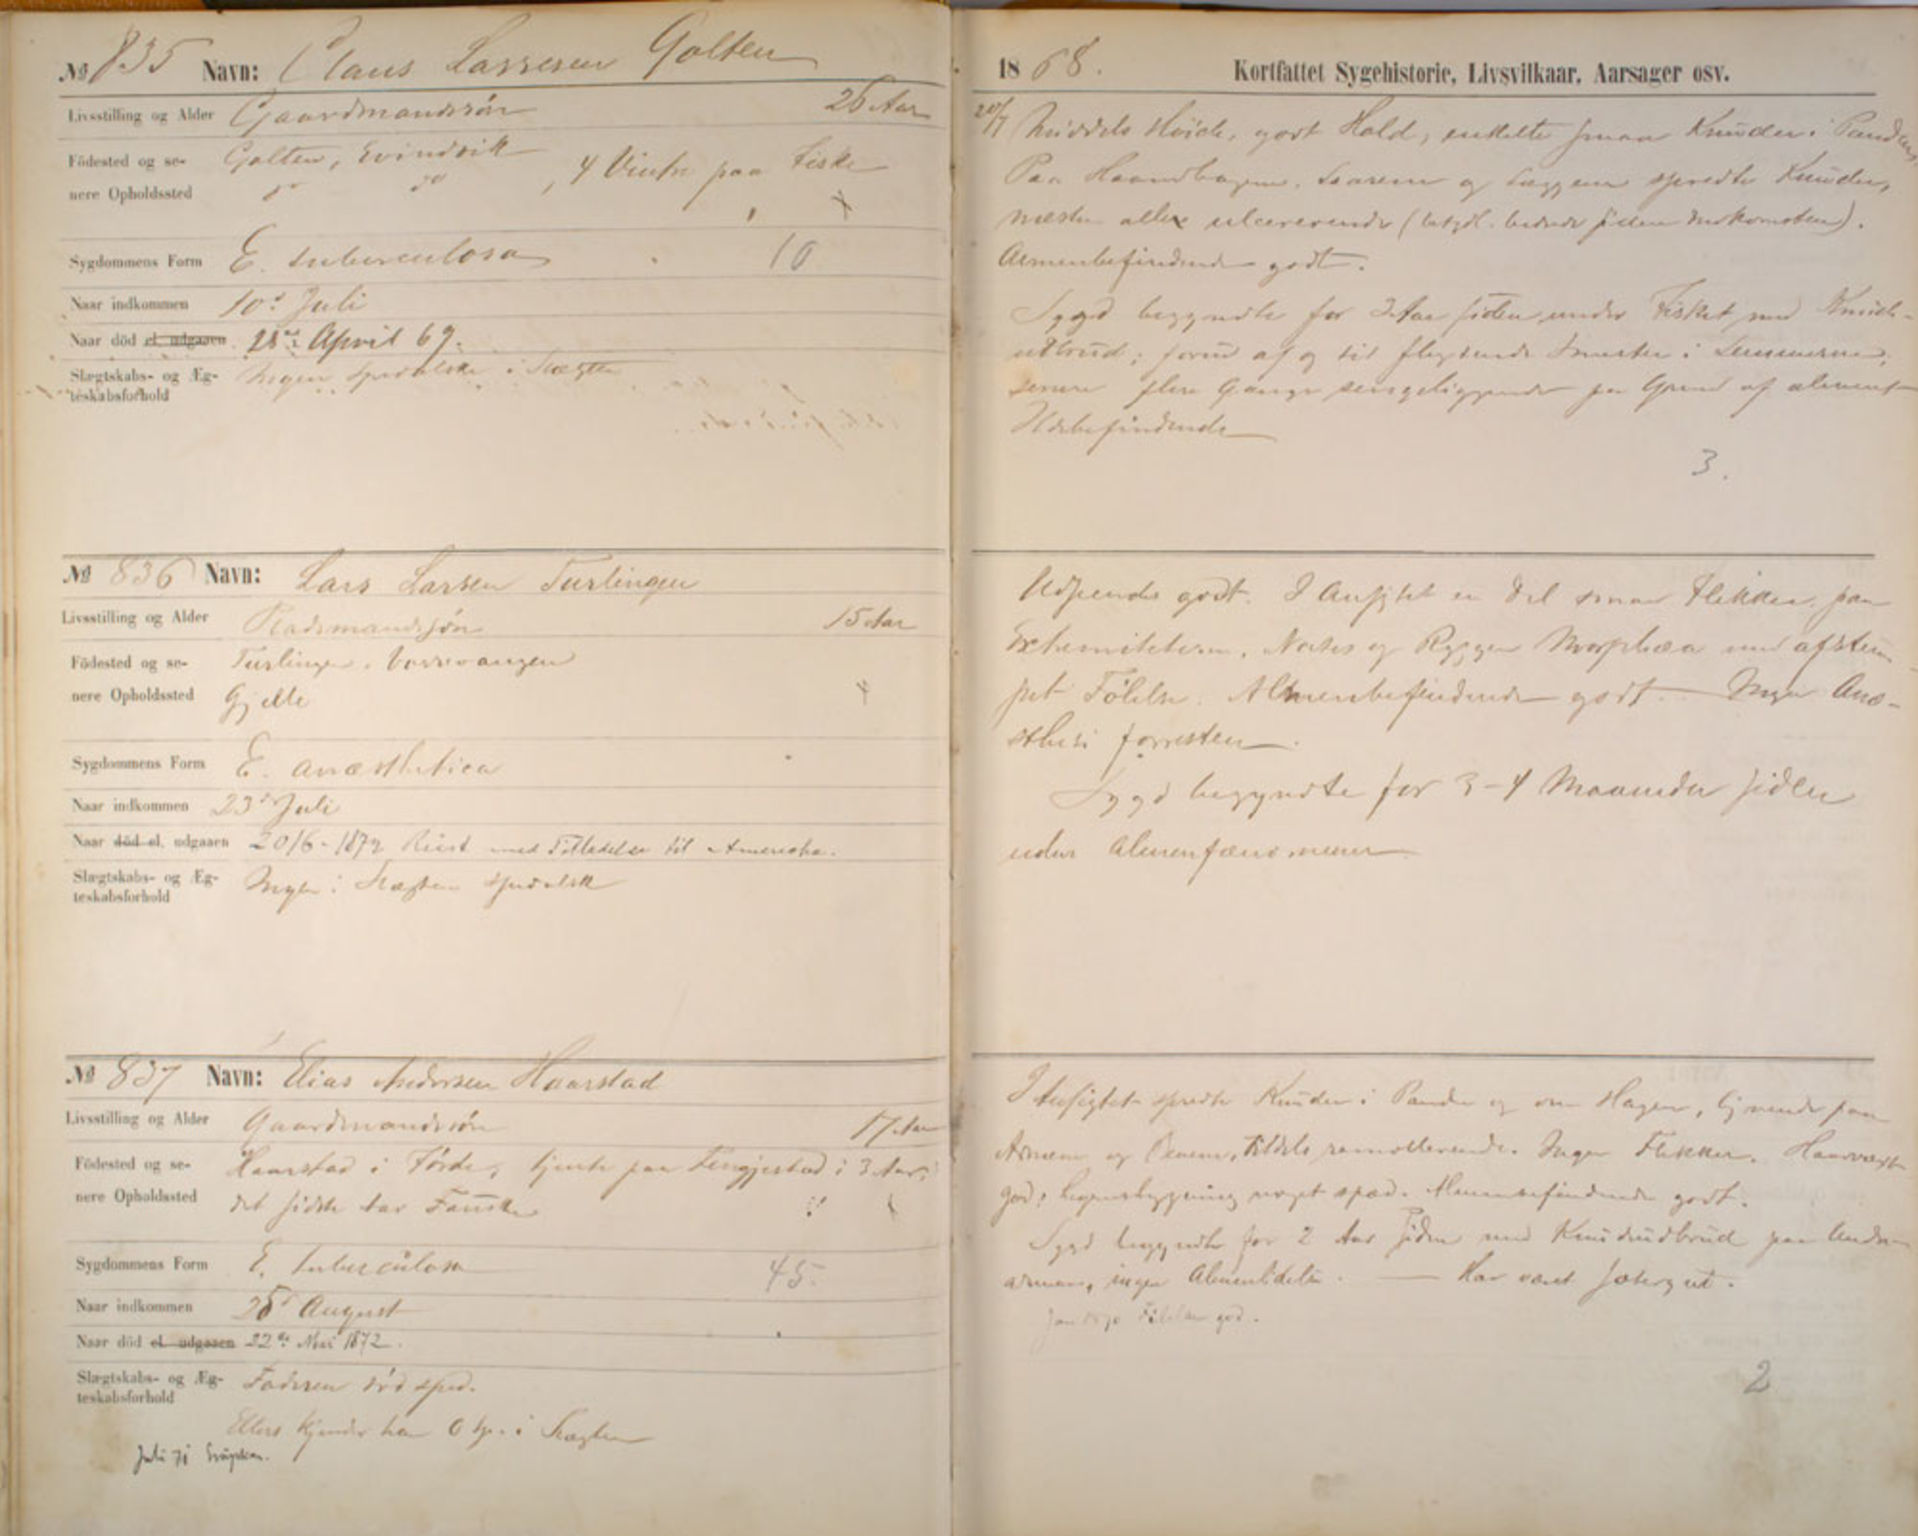 № 835 Navn: Claus Larsen Galten
Livsstilling og Alder Gaardmandssön 26 Aar
Födested og se- Galten, Evindvik
nere Opholdssted do do, 4 Vintre paa Fiske
Sygdommens Form E. tuberculosa 10
Naar indkommen 10de Juli
Naar död el. udgaaen 28de April 69.
Slægtskabs- og Æg- Ingen spedalske i Slægten
teskabsforhold
№ 836 Navn: Lars Larsen Turlingen
Livsstilling og Alder Pladsmandssön 15 Aar
Födested og se- Turlingen, Vossevangen
nere Opholdssted Gjelle
Sygdommens Form E. anæsthetica
Naar indkommen 23de Juli
Naar död el. udgaaen 20/6-1872 Reist med Tilladelse til Amerika.
Slægtskabs- og Æg- Ingen i Slægten spedalsk
teskabsforhold
№ 837 Navn: Elias Andersen Haarstad
Livsstilling og Alder Gaardmandssön 17 Aar
Födested og se- Haarstad i Förde, tjente paa i 3 Aar,
nere Opholdssted det sidste Aar
Sygdommens Form E. tuberculosa 45
Naar indkommen 28de August
Naar död el. udgaaen 22de Mai 1872.
Slægtskabs- og Æg- Faderen död sped.
teskabsforhold
Ellers kjender han 0 sp. i Slægten
Juli 71
1868. Kortfattet Sygehistorie, Livsvilkaar, Aarsager osv.
20/7 Middels Höide, godt Hold, enkelte smaa Knuder i Panden,
Paa Haandbagene, Laarene og Læggene spredte Knuder,
næsten alle ulcererende (betydl. bedrede siden Indkomsten).
Almenbefindende godt.
Sygd begyndte for 3 Aar siden under Fisket med Knude-
utbrud; forud af og til flygtende Smerter i Lemmerne,
senere flere Gange sengeliggende paa Grund af alment
Ildebefindende
3.
Udseende godt. I Ansigtet en Del smaa Flekker, paa
Extremiteterne, Nates og Ryggen Morphæa med afstum-
pet Fölelse. Almenbefindende godt. — Ingen Anæ-
sthesi forresten.
Sygd begyndte for 3-4 Maaneder siden
uden Almenfænomener
I Ansigtet spredte Knuder i Panden og om Hagen, lignende paa
Armene og Benene, tildels ramollerende. Ingen Flekker. Haarvæxt
god; Legemsbygning noget spæd. Almenbefindende godt.
Sygd begyndte for 2 Aar siden med Knudeudbrud paa Under-
armene, ingen Almenlidelse. — Har været
Fölelse god.
2